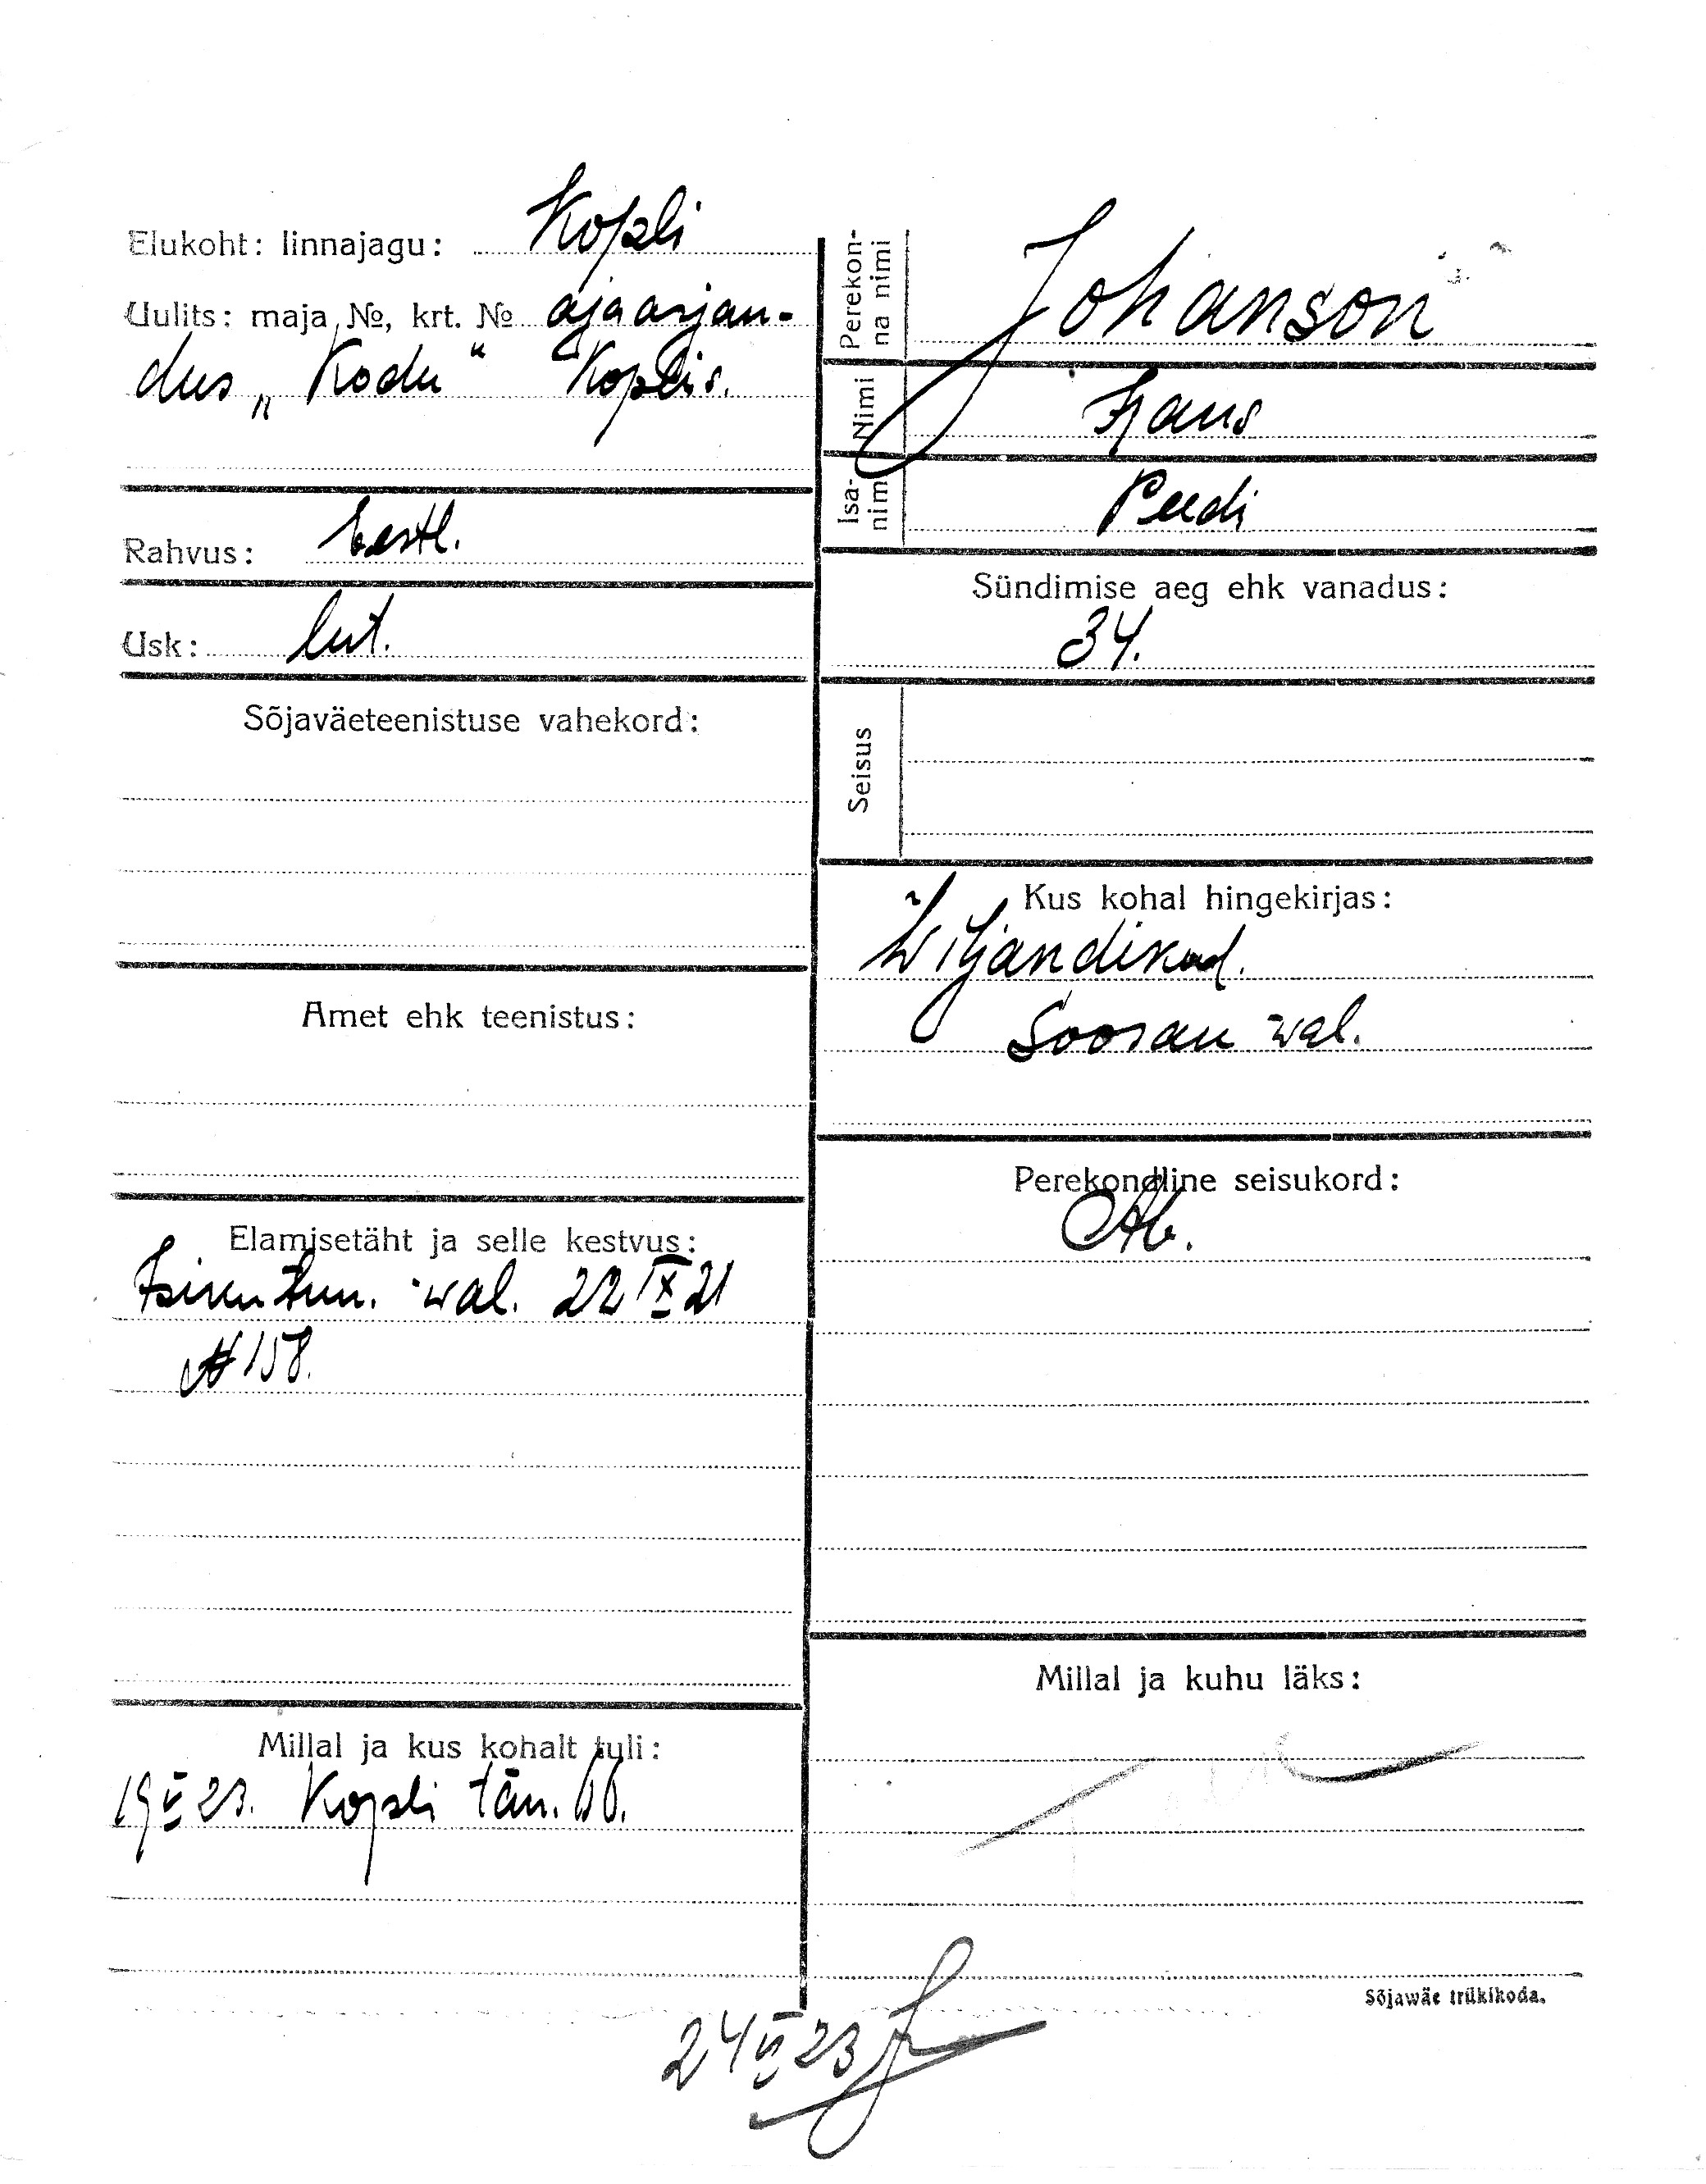 Elukoht: linnajagu: Kopli
Uulits: maja №, krt. № ajaarjan-
dus „Kodu“ Koplis.
Rahvus: Eestl.
Usk: lut.
Sõjaväeteenistuse vahekord:
Amet ehk teenistus:
Elamisetäht ja selle kestvus:
wal. 22 IX 21
№ 158.
Millal ja kus kohalt tuli:
19 V 23. Kopli tän.
Perekon-
na nimi
Johanson
Nimi
Hans
Isa-
nimi
Peedi
Sündimise aeg ehk vanadus:
34.
Seisus
Kus kohal hingekirjas:
Wiljandi
Soosaar wal.
Perekondline seisukord:
Ab.
Millal ja kuhu läks:
Sõjawäe trükikoda.
24 VI 23